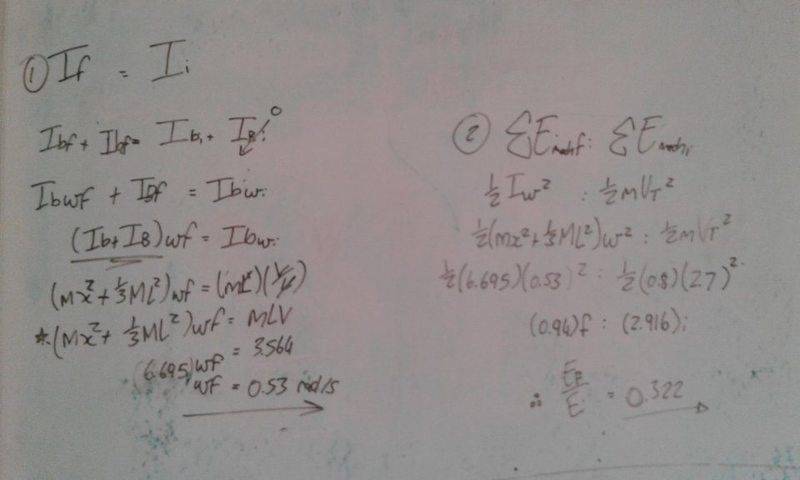 ① If = Ii
Ibf + IBf = Ibi + IBi 0
Ibwf + IBf = Ibwi
(Ib+IB)wf = Ibwi
(mx² + ⅓ML²)wf = (mL²)(V/L)
*(mx² + ⅓ML²)wf = MLV
(6.695)wf = 3.564
wf = 0.53 rad/s
② ΣEmechf : ΣEmechi
½Iw² : ½mVT²
½(mx² + ⅓ML²)w² : ½mVT²
½(6.695)(0.53)² : ½(0.8)(2.7)²
(0.94)f : (2.916)i
∴ EF/Ei = 0.322